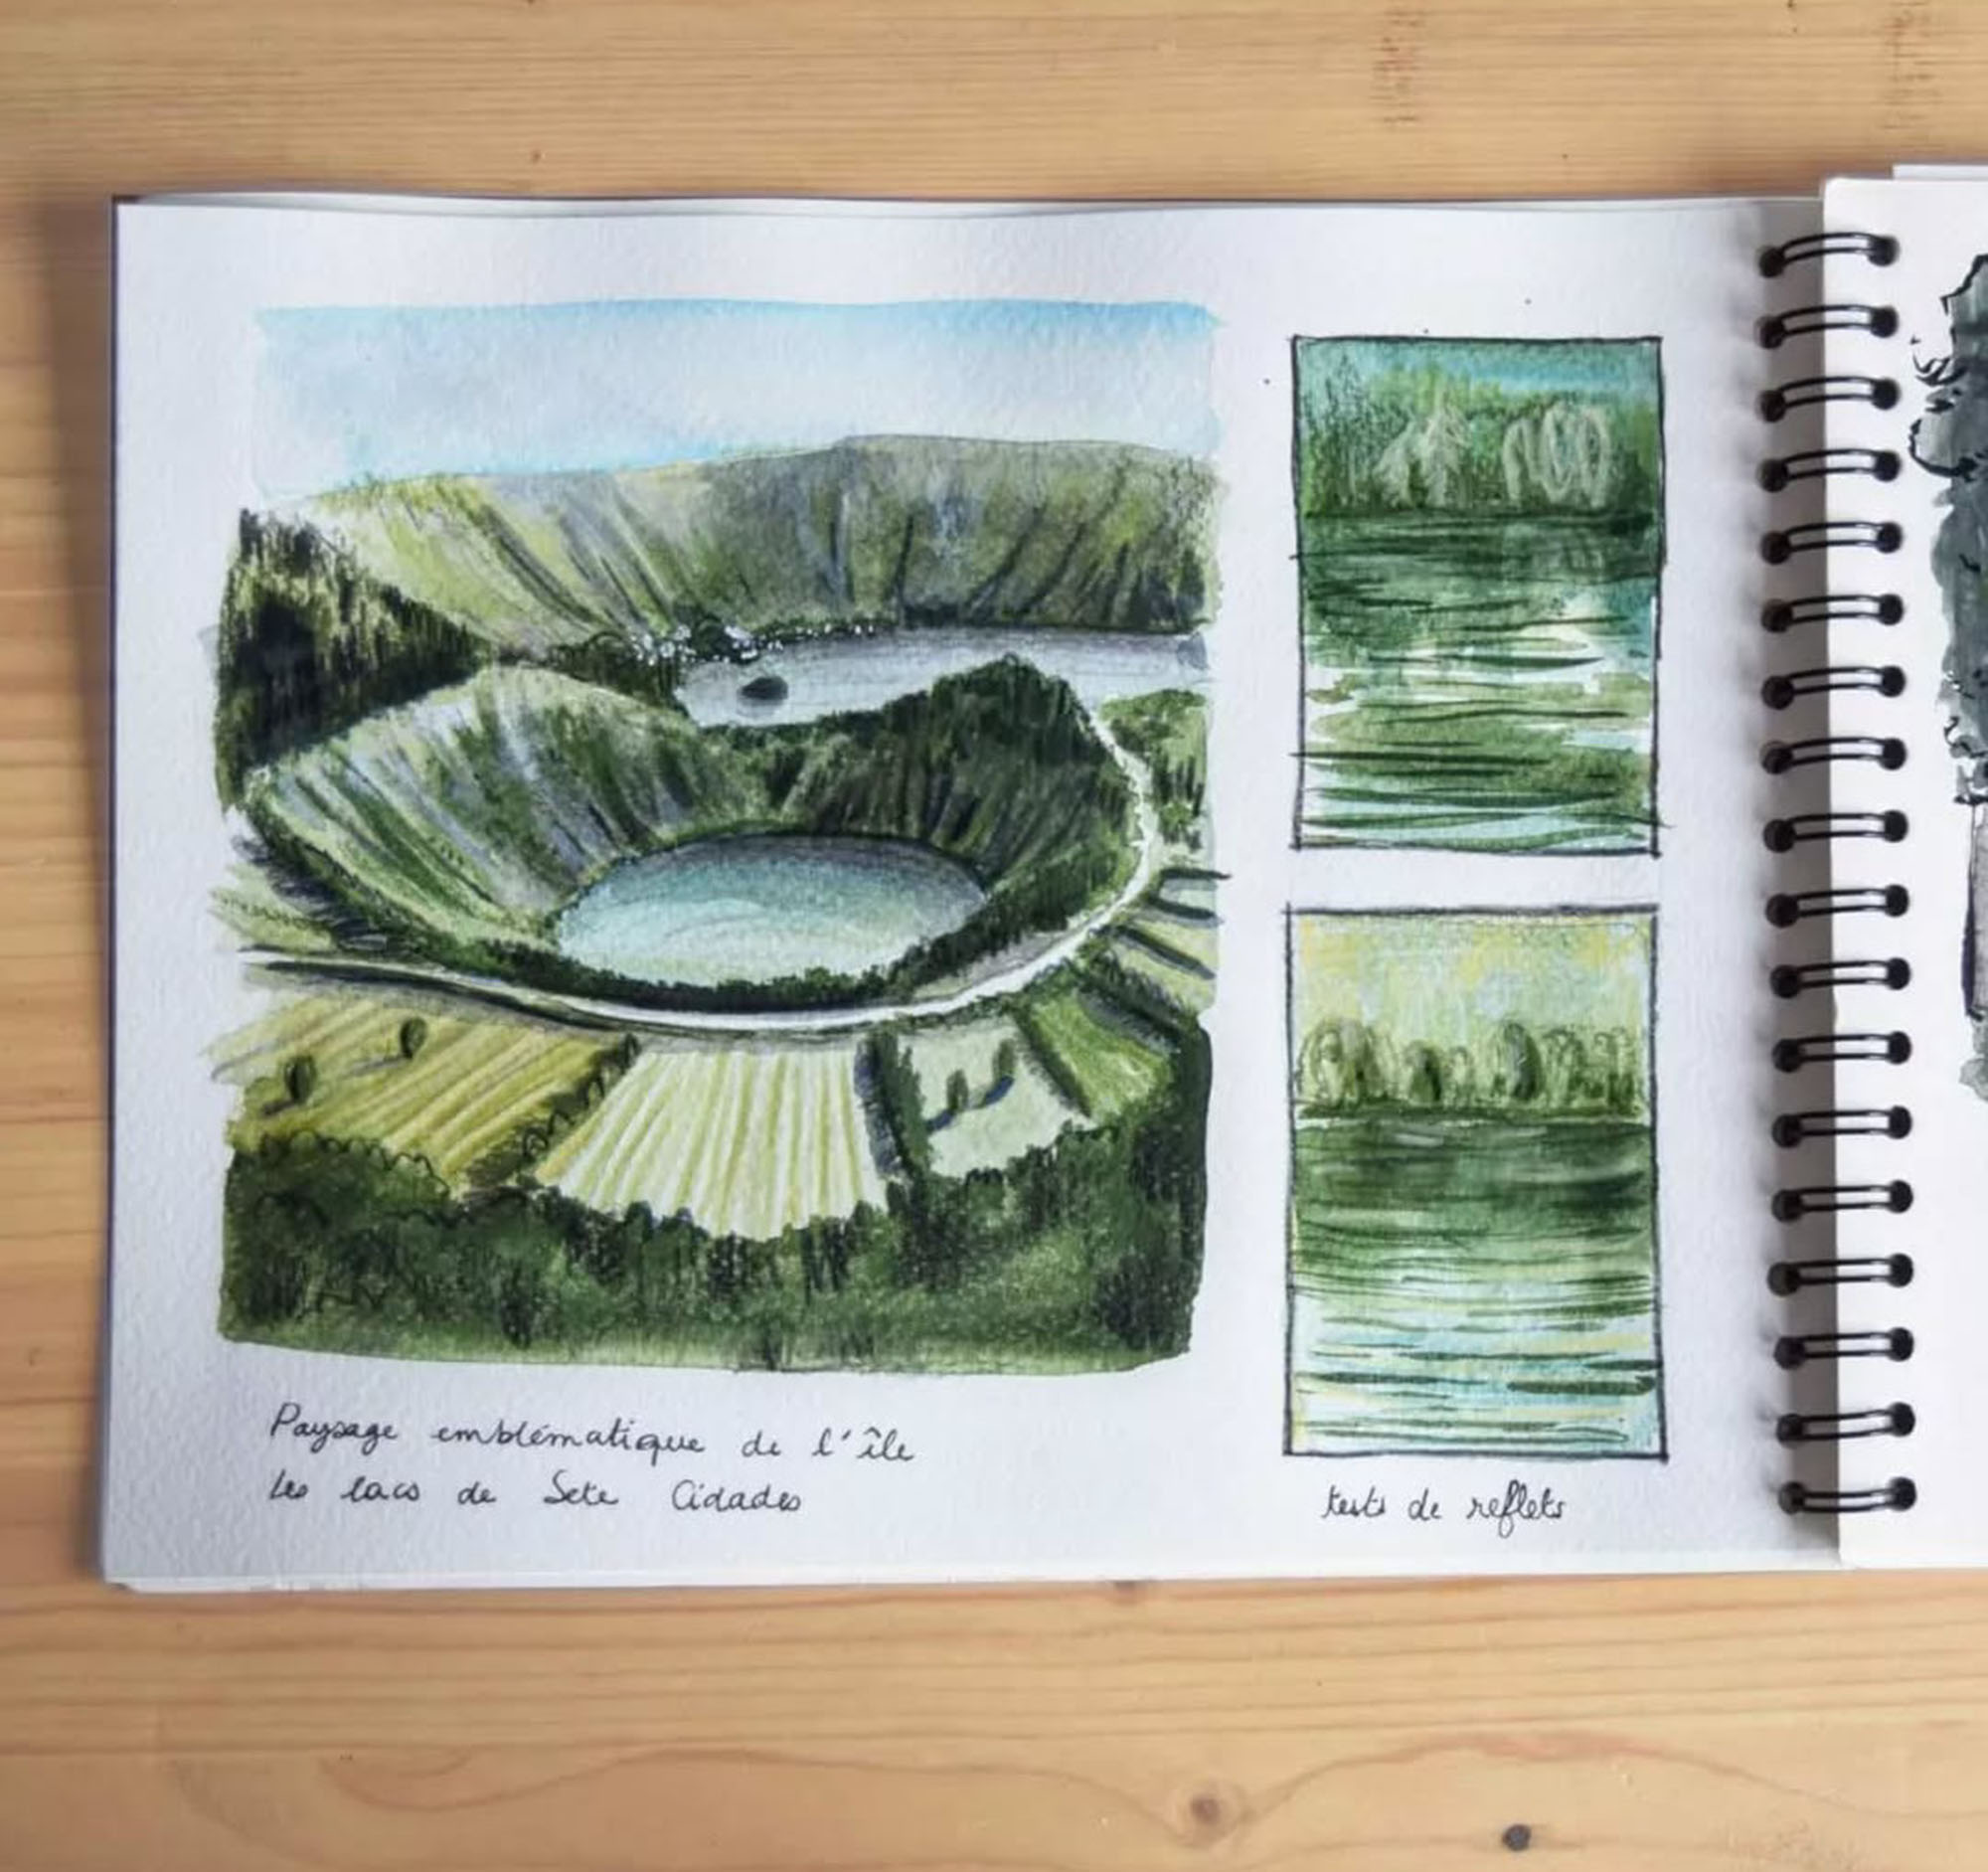 Paysage emblématique de l'île
Les lacs de Sete Cidades
tests de reflets